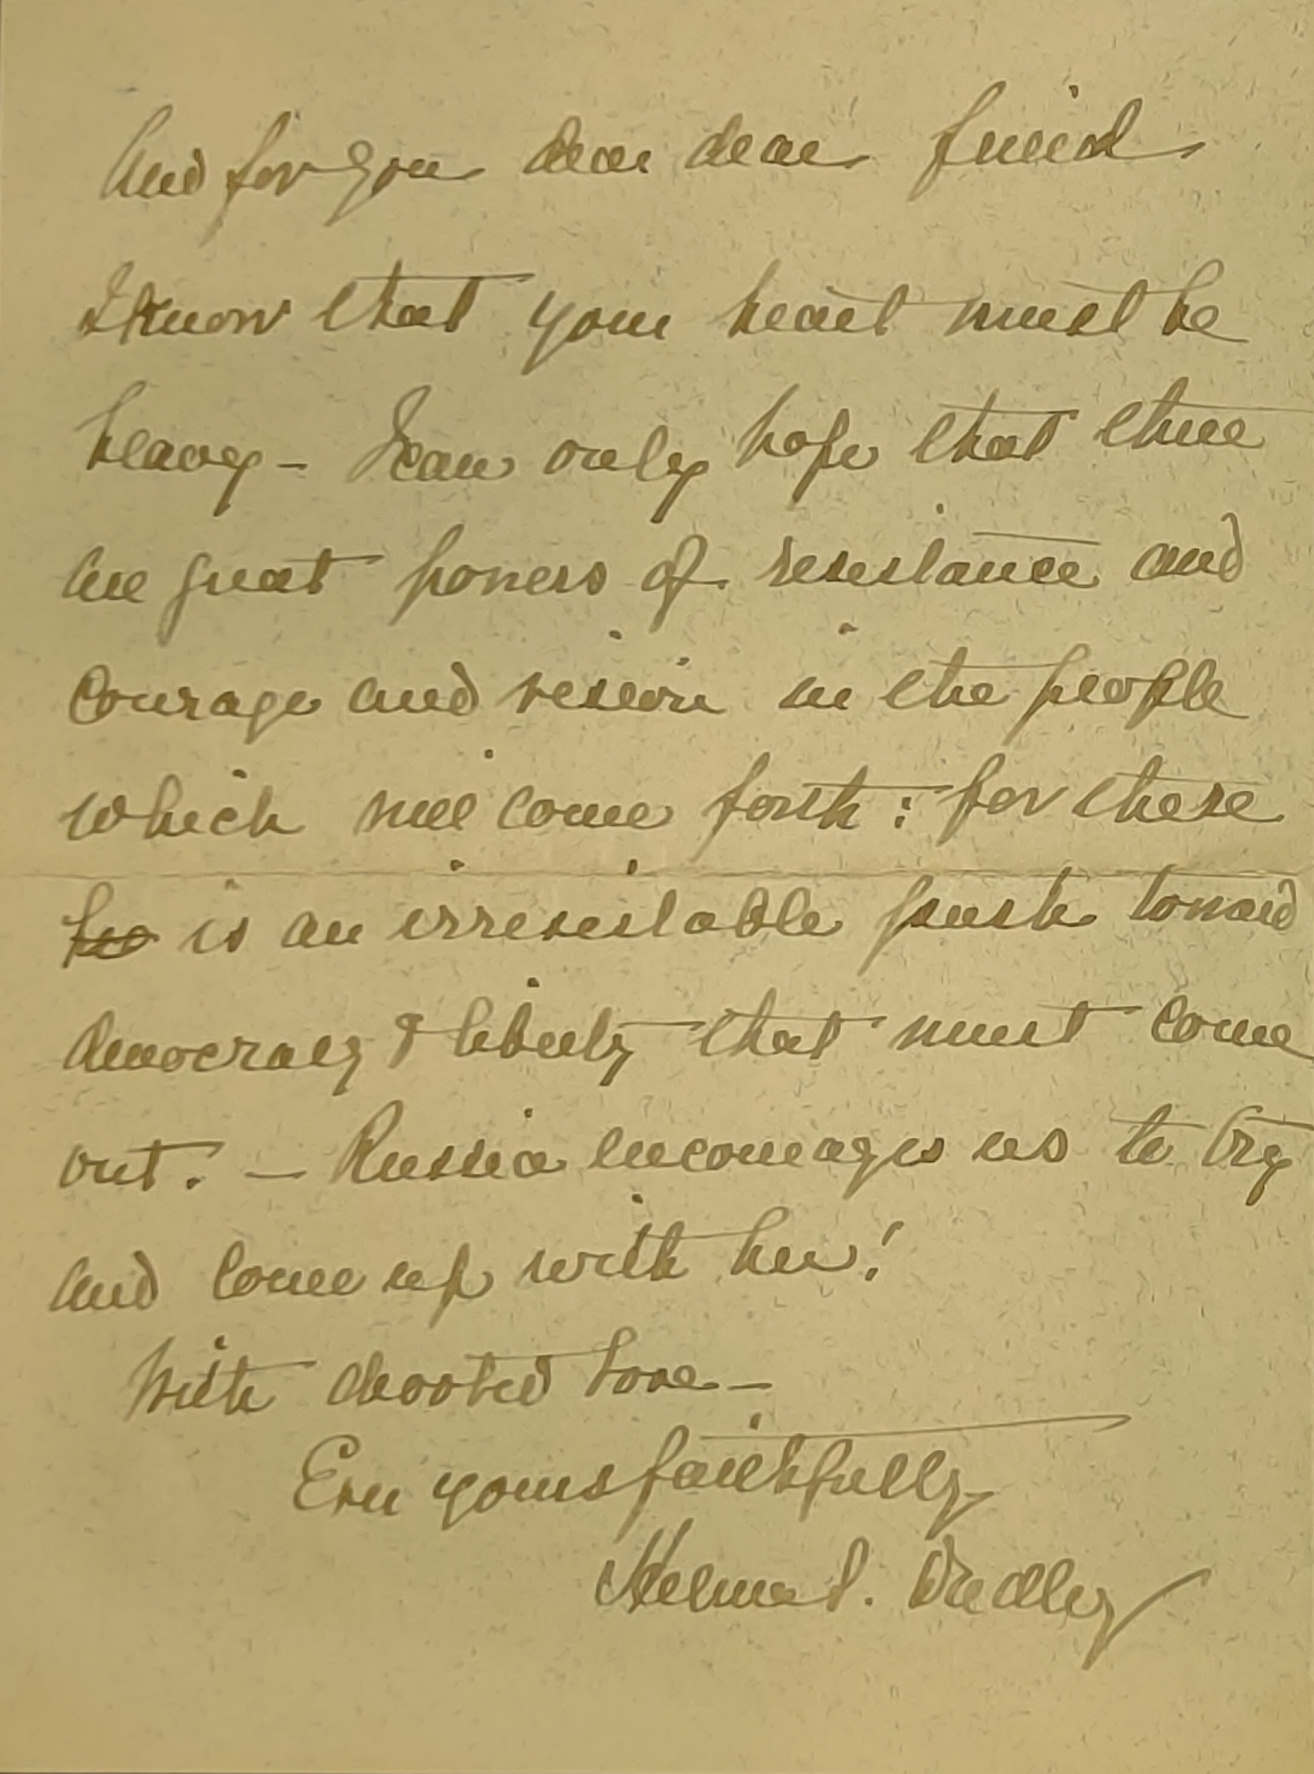 And for you dear dear friend
I know that your heart must be
heavy – I can only hope that there
are great powers of resistance and
courage and vision in the people
which will come forth : for there
is an irresistable push toward
democracy & liberty that must come
out. – Russia encourages us to try
and come up with her!
With devoted love –
Ever yours faithfully
Helena S. Dudley